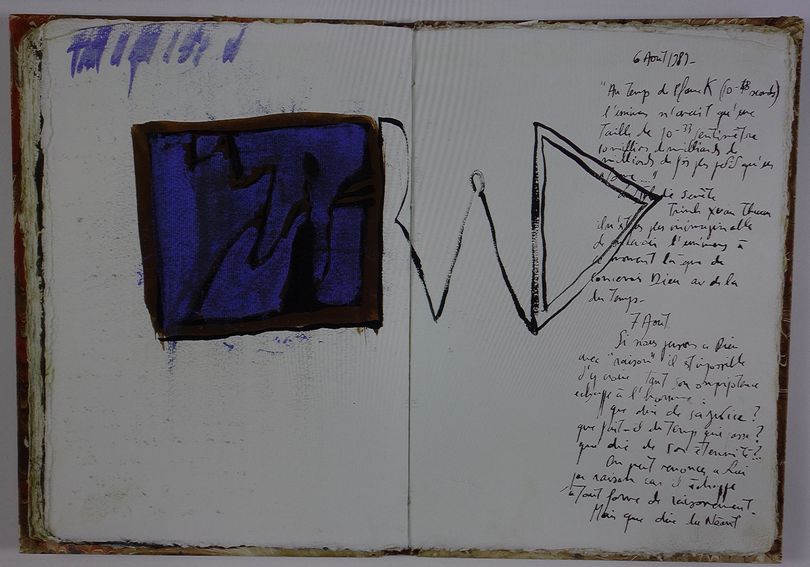 6 Août 1989 -
"Au temps de Planck (10-43 seconde)
l'univers n'avait qu'une
taille de 10-33 centimètre
10 millions de milliards de
milliards de fois plus petit qu'un
atome..."
Trinh Xuan Thuan
l'univers à
ce moment là que de
concevoir Dieu au delà
du temps -
7 Août
Si nous pensons à Dieu
avec "raison" il est impossible
d'y croire tant son omnipotence
échappe à l'homme :
que dire de sa justice ?
que fait-il du temps qui passe ?
que dire de son éternité ?..
On peut renoncer à lui
par raison car il échappe
à tout forme de raisonnement.
Mais que dire du Néant